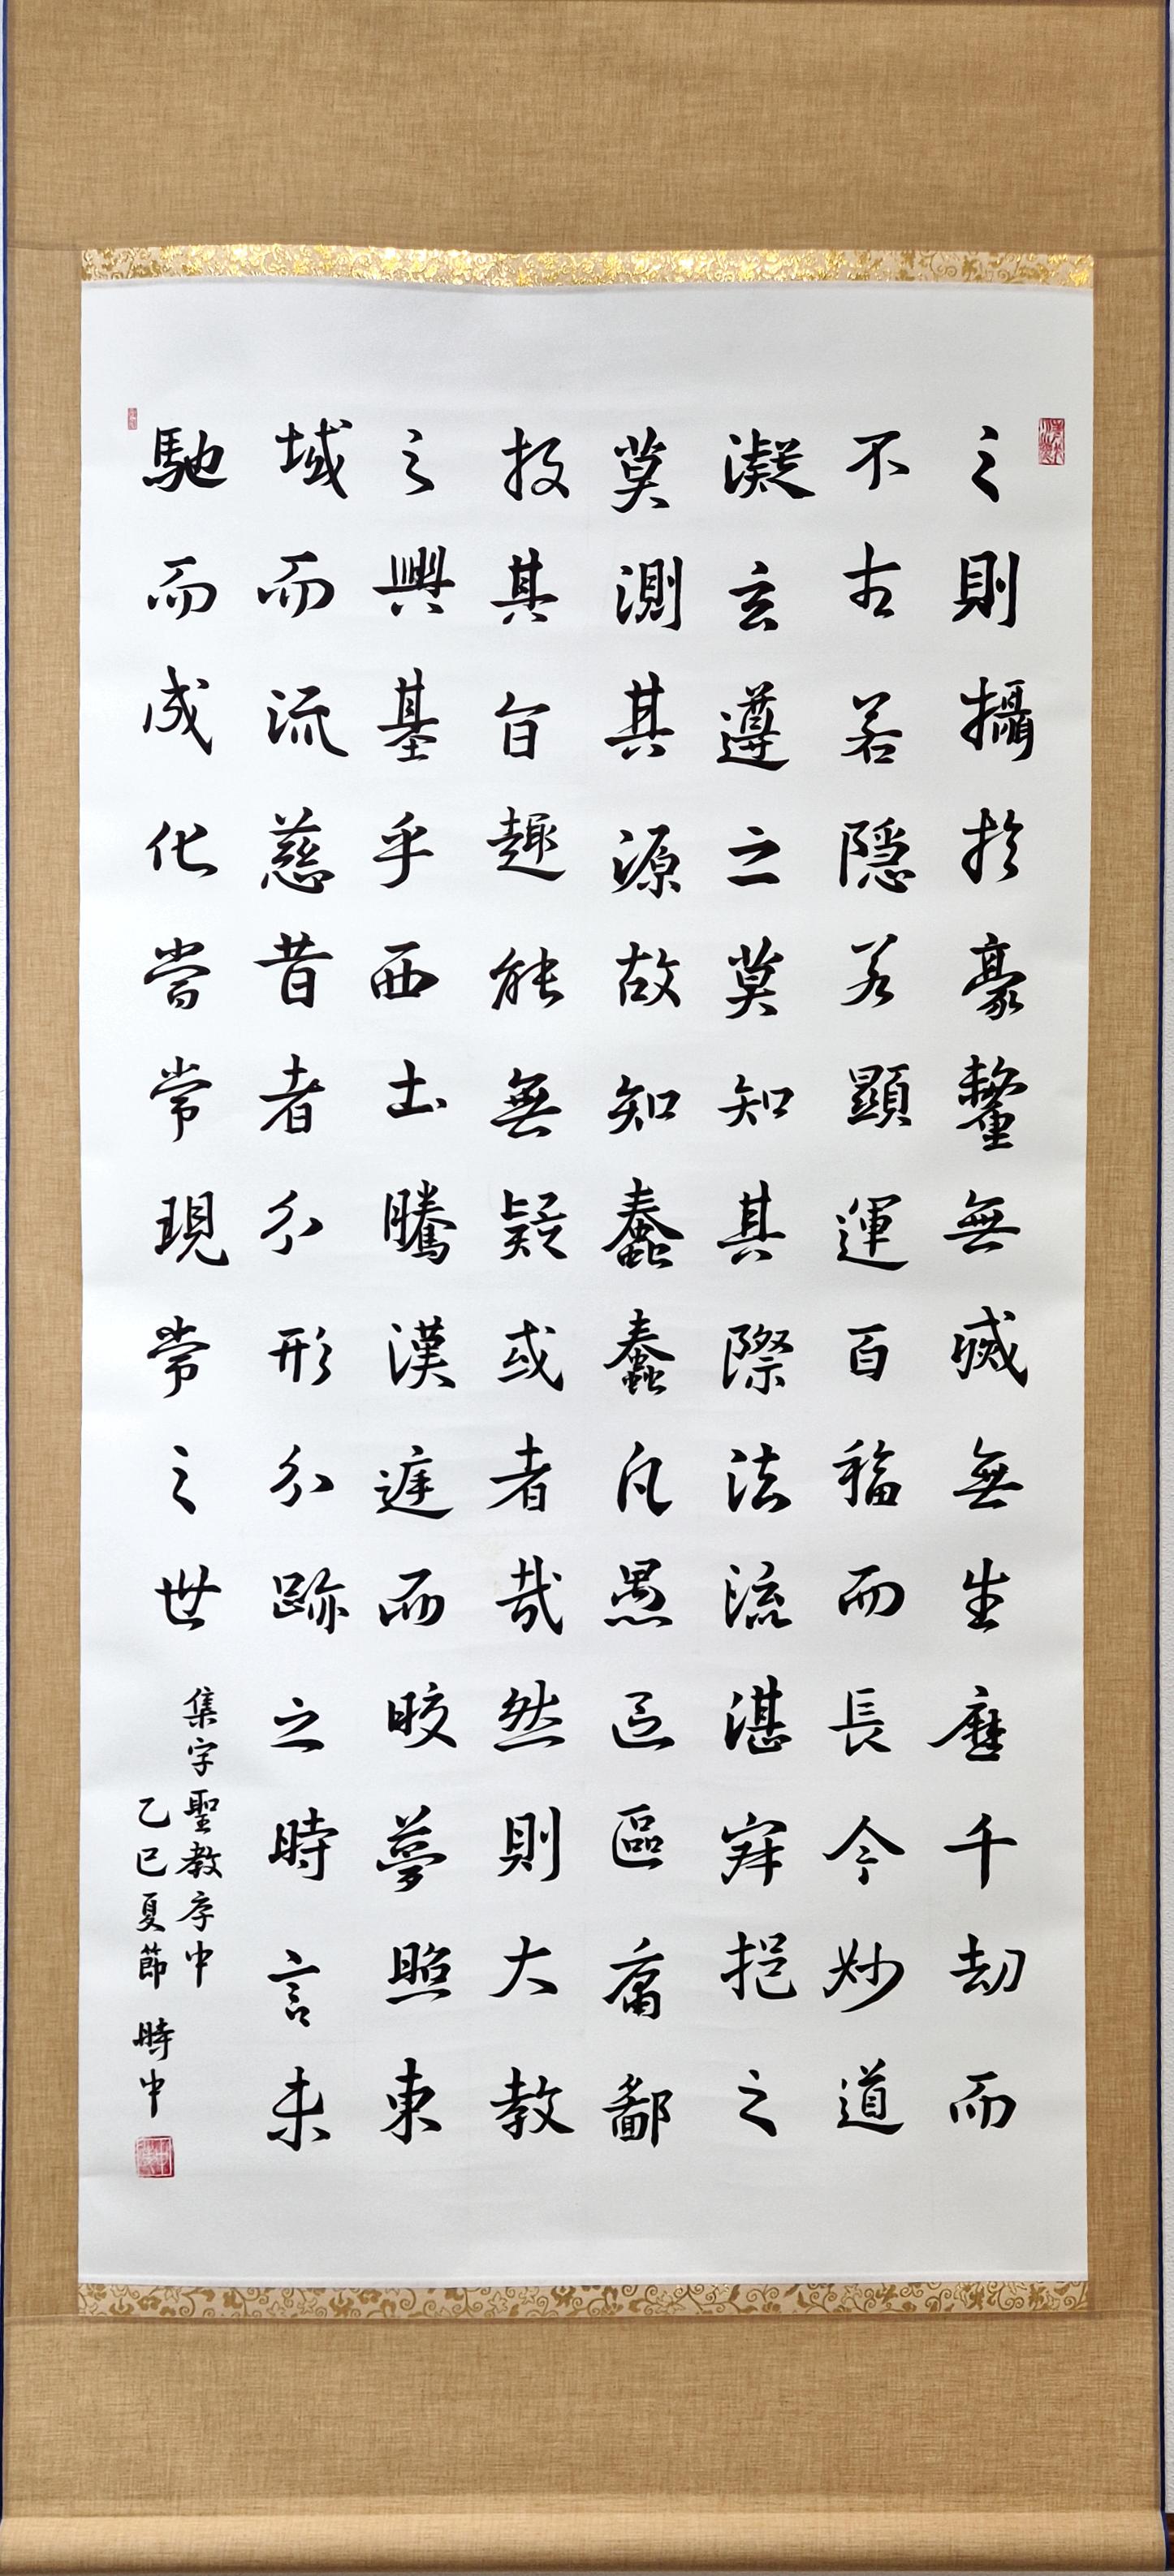 之則攝於豪釐無滅無生歷千劫而
不古若隱若顯運百福而長今妙道
凝玄遵之莫知其際法流湛寂挹之
莫測其源故知蠢蠢凡愚區區庸鄙
投其旨趣能無疑或者哉然則大教
之興基乎西土騰漢庭而皎夢照東
域而流慈昔者分形分跡之時言未
馳而成化當常現常之世
集字聖教序中
乙巳夏節 時中